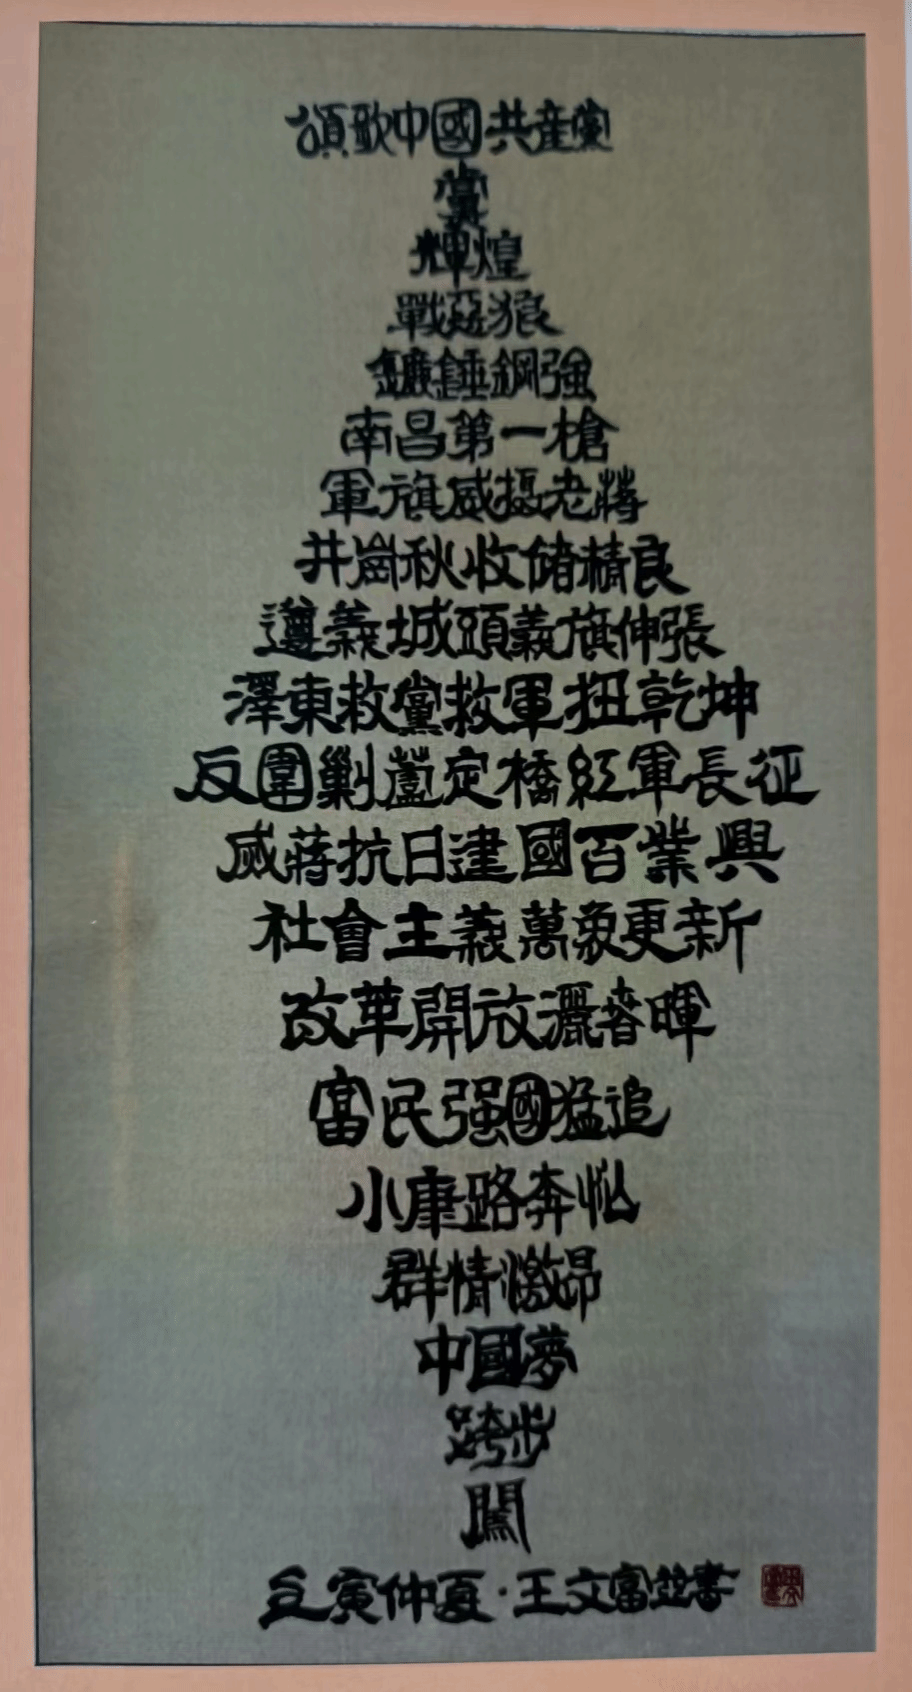 頌歌中國共産黨
黨
輝煌
戰惡狼
鑣錘鋼強
南昌第一槍
軍旗威摄老蔣
井崗秋收储精良
遵義城頭義旗伸張
澤東救黨救軍扭乾坤
反圍剿蘆定橋紅軍長征
威蔣抗日建國百業興
社會主義萬象更新
改革開放灑春暉
富民强國猛追
小康路奔忙
群情激昂
中國夢
跨步
闖
寅仲夏·王文富並書